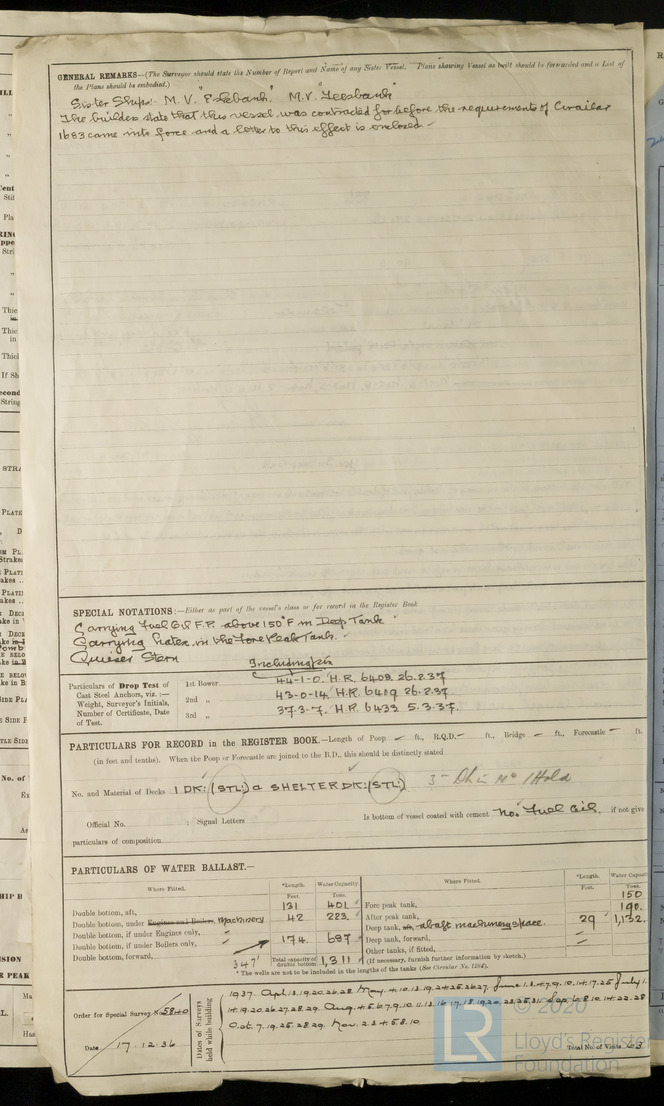 GENERAL REMARKS—(The Surveyor should state the Number of Report and Name of any Sister Vessel. Plans showing Vessel as built should be forwarded and a List of
the Plans should be embodied.)
Sister Ships: M.V. "Eskbank" M.V. "Teesbank"
The builders state that this vessel was contracted for before the requirements of Circular
1683 came into force and a letter to this effect is enclosed.—
SPECIAL NOTATIONS:—Either as part of the vessel's class or for record in the Register Book
Carrying Fuel Oil F.P. above 150°F in Deep Tank
Carrying Water in the Fore Peak Tank.
Cruiser Stern
Including pin
Particulars of Drop Test of
Cast Steel Anchors, viz.:—
Weight, Surveyor's Initials,
Number of Certificate, Date
of Test.
1st Bower 44-1-0. H.R. 6408. 26.2.37
2nd „ 43-0-14. H.R. 6409 26.2.37
3rd „ 37-3-7. H.R. 6433 5.3.37.
PARTICULARS FOR RECORD in the REGISTER BOOK.—Length of Poop — ft., R.Q.D.— ft., Bridge — ft., Forecastle — ft.
(in feet and tenths). When the Poop or Forecastle are joined to the B.D., this should be distinctly stated
No. and Material of Decks 1 DK: (STL) & SHELTER DK: (STL)
Official No. ; Signal Letters Is bottom of vessel coated with cement No. Fuel Oil. if not give
particulars of composition
PARTICULARS OF WATER BALLAST.—
Where Fitted. *Length. Water Capacity. Where Fitted. *Length. Water Capacity
Feet. Tons. Feet. Tons.
Double bottom, aft, 131 401 Fore peak tank, 150
Double bottom, under Engines and Boilers, Machinery 42 223. After peak tank, 190.
Double bottom, if under Engines only, „ Deep tank, aft, abaft machinery space. 29 1,132.
Double bottom, if under Boilers only, „ Deep tank, forward, —
Double bottom, forward, 174. 687 Other tanks, if fitted, —
347' Total capacity of double bottom 1,311 (If necessary, furnish further information by sketch.)
* The wells are not to be included in the lengths of the tanks (See Circular No. 1284).
Order for Special Survey No. 5840
Date 17.12.36
Dates of Surveys
held while building
1937. April
Oct. 7.19.25.28.29. Nov. 2.3.4.5.8.10.
Total No. of Visits 63
© 2020
LR
Lloyd's Register
Foundation